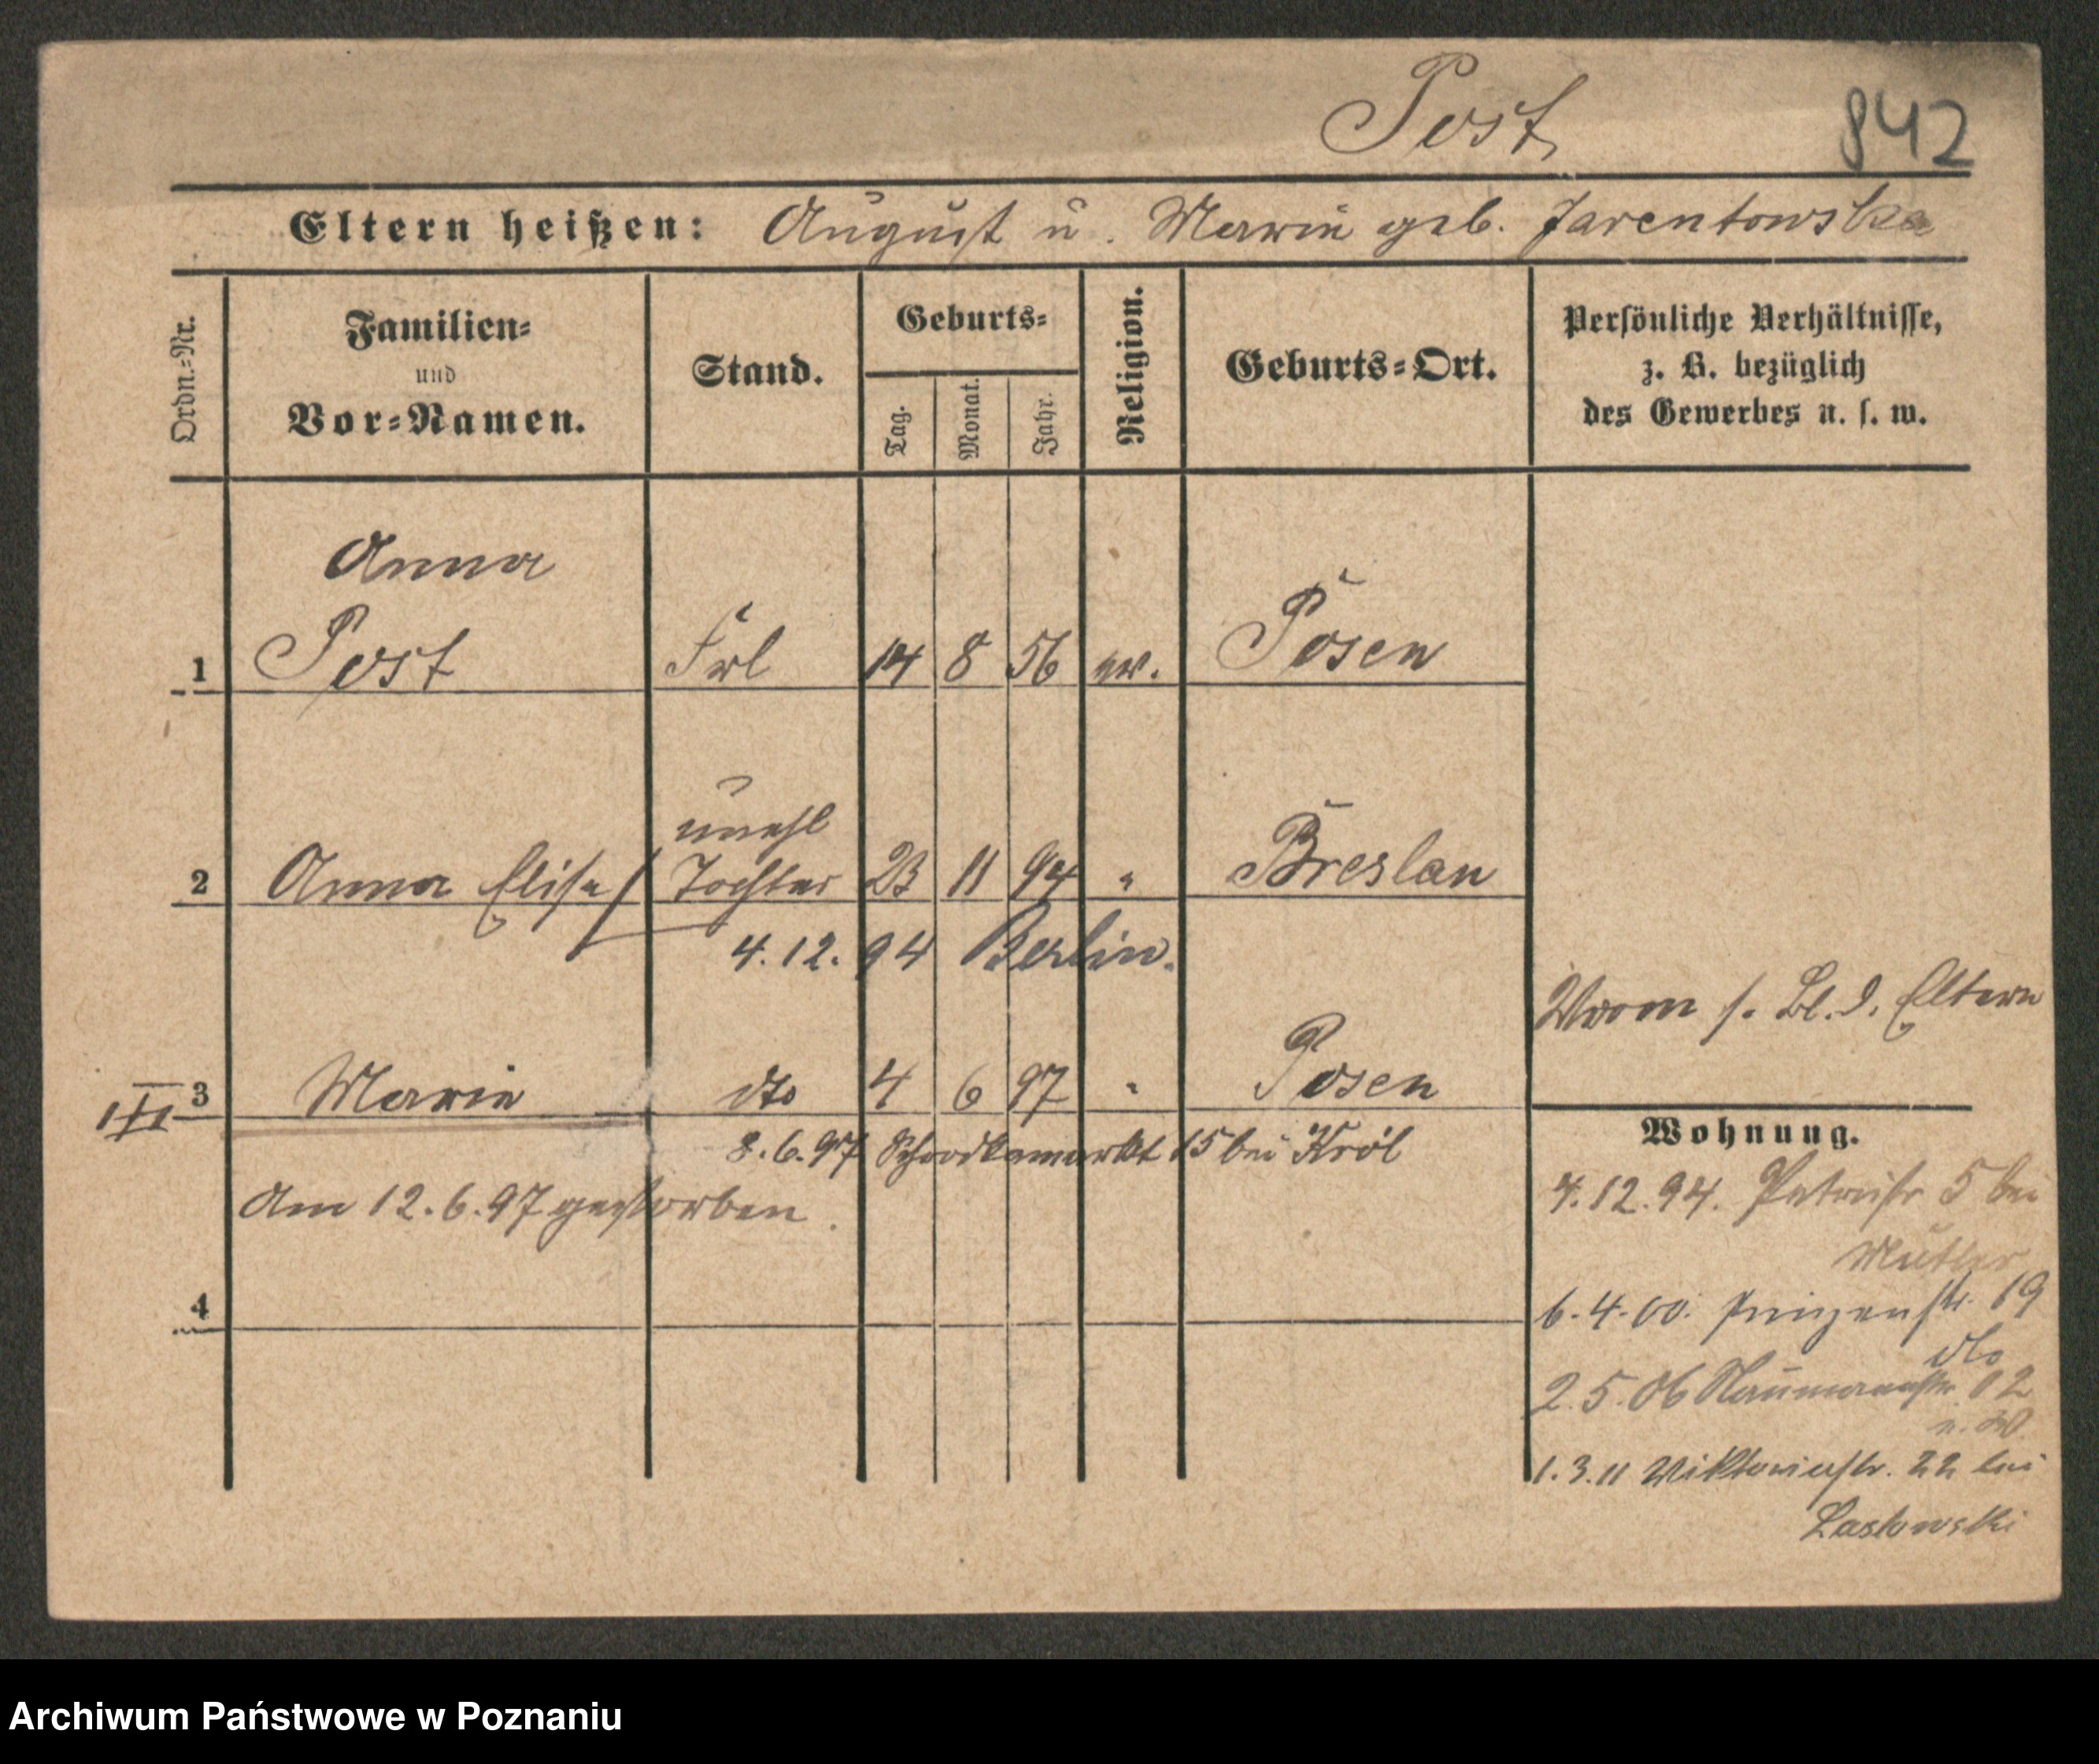 Post 842
Eltern heißen: August u. Marie geb. Jarentowska
Ordn.-Nr. Familien- und Vor-Namen. Stand. Geburts- Tag. Monat. Jahr. Religion. Geburts-Ort. Persönliche Verhältnisse, z. B. bezüglich des Gewerbes u. s. w.
Anna
1 Post Frl 14 8 56 ev. Posen
unehl
2 Anna Elise Tochter 23 11 94 " Breslau
4.12.94 Berlin.
s. Bl. d. Eltern
3 Marie dto 4 6 97 " Posen
8.6.97 Schrodkamarkt 15 bei Król
Am 12.6.97 gestorben.
4
Wohnung.
4.12.94. Petristr 5 bei
Mutter
6.4.00. Prinzenstr. 19
dto
2.5.06 Naumannstr 12
1.3.11 Viktoriastr. 22 bei
Laskowski
Archiwum Państwowe w Poznaniu